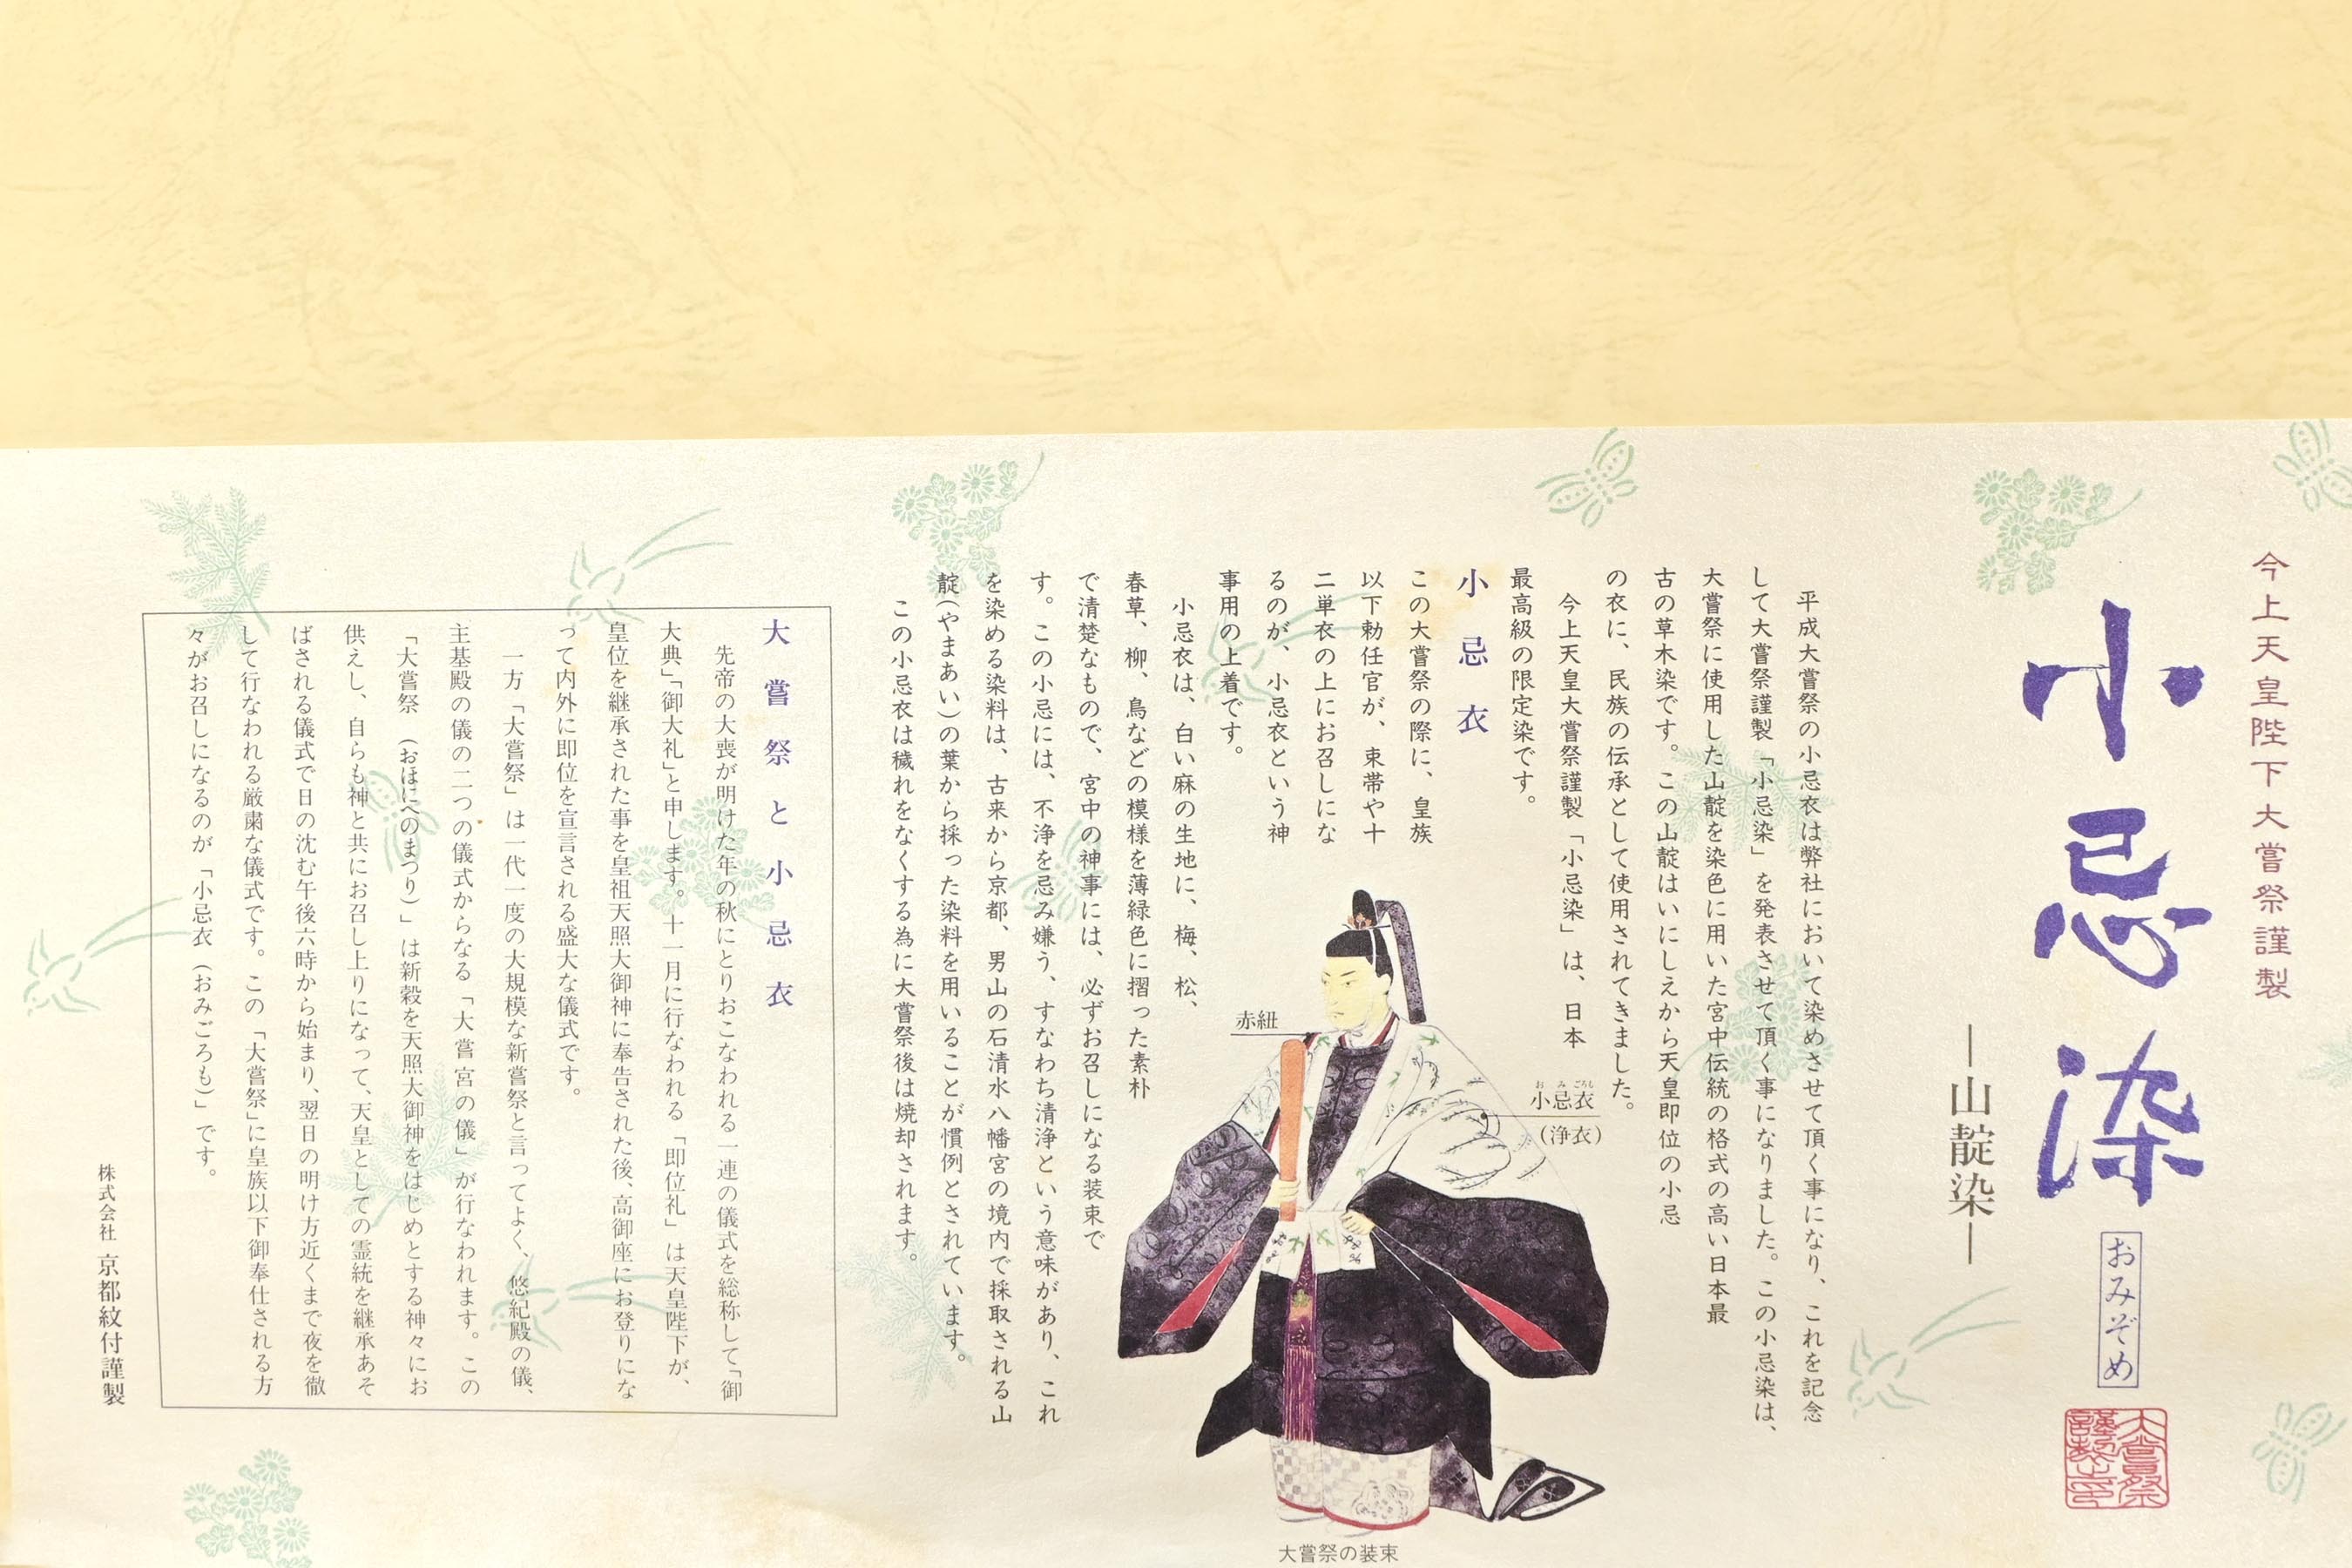 今上天皇陛下大嘗祭謹製
小忌染
おみぞめ
大嘗祭
謹製之印
―山靛染―
平成大嘗祭の小忌衣は弊社において染めさせて頂く事になり、これを記念
して大嘗祭謹製「小忌染」を発表させて頂く事になりました。この小忌染は、
大嘗祭に使用した山靛を染色に用いた宮中伝統の格式の高い日本最
古の草木染です。この山靛はいにしえから天皇即位の小忌
の衣に、民族の伝承として使用されてきました。
今上天皇大嘗祭謹製「小忌染」は、日本
最高級の限定染です。
小忌衣
この大嘗祭の際に、皇族
以下勅任官が、束帯や十
二単衣の上にお召しにな
るのが、小忌衣という神
事用の上着です。
小忌衣は、白い麻の生地に、梅、松、
春草、柳、鳥などの模様を薄緑色に摺った素朴
で清楚なもので、宮中の神事には、必ずお召しになる装束で
す。この小忌には、不浄を忌み嫌う、すなわち清浄という意味があり、これ
を染める染料は、古来から京都、男山の石清水八幡宮の境内で採取される山
靛(やまあい)の葉から採った染料を用いることが慣例とされています。
この小忌衣は穢れをなくする為に大嘗祭後は焼却されます。
おみごろも
小忌衣
(浄衣)
赤紐
大嘗祭の装束
大嘗祭と小忌衣
先帝の大喪が明けた年の秋にとりおこなわれる一連の儀式を総称して「御
大典」「御大礼」と申します。十一月に行なわれる「即位礼」は天皇陛下が、
皇位を継承された事を皇祖天照大御神に奉告された後、高御座にお登りにな
って内外に即位を宣言される盛大な儀式です。
一方「大嘗祭」は一代一度の大規模な新嘗祭と言ってよく、悠紀殿の儀、
主基殿の儀の二つの儀式からなる「大嘗宮の儀」が行なわれます。この
「大嘗祭(おほにへのまつり)」は新穀を天照大御神をはじめとする神々にお
供えし、自らも神と共にお召し上りになって、天皇としての霊統を継承あそ
ばされる儀式で日の沈む午後六時から始まり、翌日の明け方近くまで夜を徹
して行なわれる厳粛な儀式です。この「大嘗祭」に皇族以下御奉仕される方
々がお召しになるのが「小忌衣(おみごろも)」です。
株式会社 京都紋付謹製